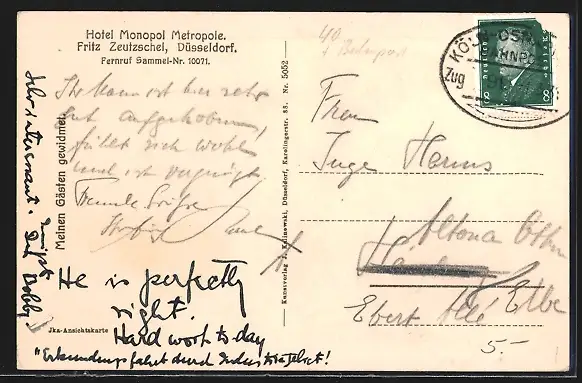 Hotel Monopol Metropole.
Fritz Zeutzschel, Düsseldorf.
Fernruf Sammel-Nr. 10071.
Meinen Gästen gewidmet.
Ihr Mann ist hier sehr
gut aufgehoben,
fühlt sich wohl
und ist vergnügt
Freundl. Grüße
He is perfectly
right.
Hard work to day
"Erkundungsfahrt durch Industriegebiet!
Sehr interessant.
Dein Bobby
Jka-Ansichtskarte
Kunstverlag J. Kalinowski, Düsseldorf, Karolingerstr. 83. Nr. 5052
40
+ Bahnpost
KÖLN-OSN
BAHNPOST
Zug
DEUTSCHES REICH
8 8
Frau
Inge Herms
Altona
Elbe
5.-